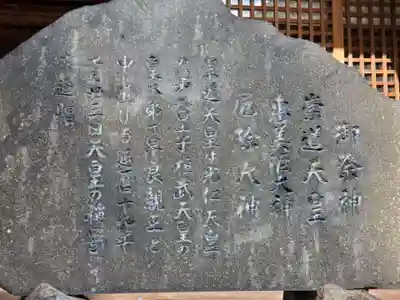 御祭神
崇道天皇
恵美酒大神
厄除大神
崇道天皇は光仁天皇
の第二皇子桓武天皇の
皇太弟で早良親王と
申し
延暦十九年
七月二十三日天皇の
追